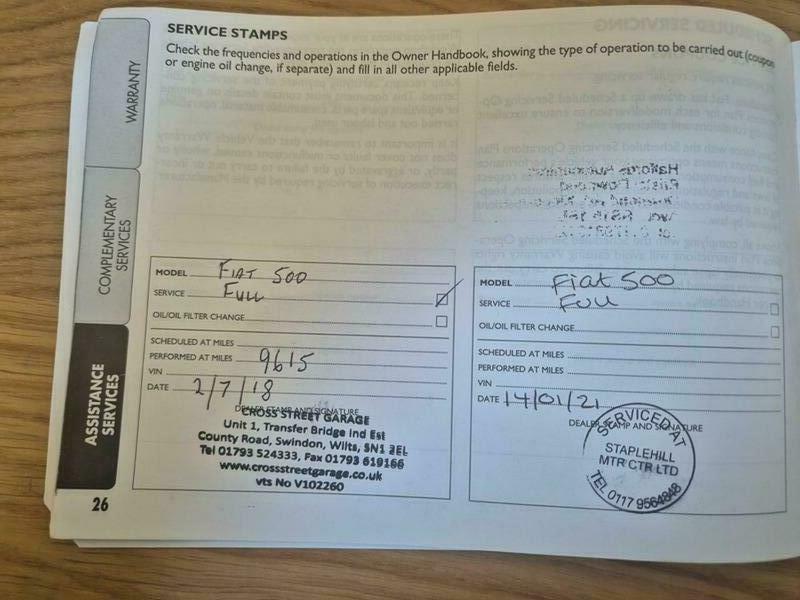 SERVICE STAMPS
Check the frequencies and operations in the Owner Handbook, showing the type of operation to be carried out (coupon
or engine oil change, if separate) and fill in all other applicable fields.
WARRANTY
COMPLEMENTARY
SERVICES
ASSISTANCE
SERVICES
26
MODEL FIAT 500
SERVICE FULL
OIL/OIL FILTER CHANGE
SCHEDULED AT MILES
PERFORMED AT MILES 9615
VIN
DATE 2/7/18
DEALER STAMP AND SIGNATURE
CROSS STREET GARAGE
Unit 1, Transfer Bridge Ind Est
County Road, Swindon, Wilts, SN1 2EL
Tel 01793 524333, Fax 01793 619166
www.crossstreetgarage.co.uk
vts No V102260
MODEL Fiat 500
SERVICE Full
OIL/OIL FILTER CHANGE
SCHEDULED AT MILES
PERFORMED AT MILES
VIN
DATE 14/01/21
DEALER STAMP AND SIGNATURE
SERVICED AT
STAPLEHILL
MTR CTR LTD
TEL 0117 9564848